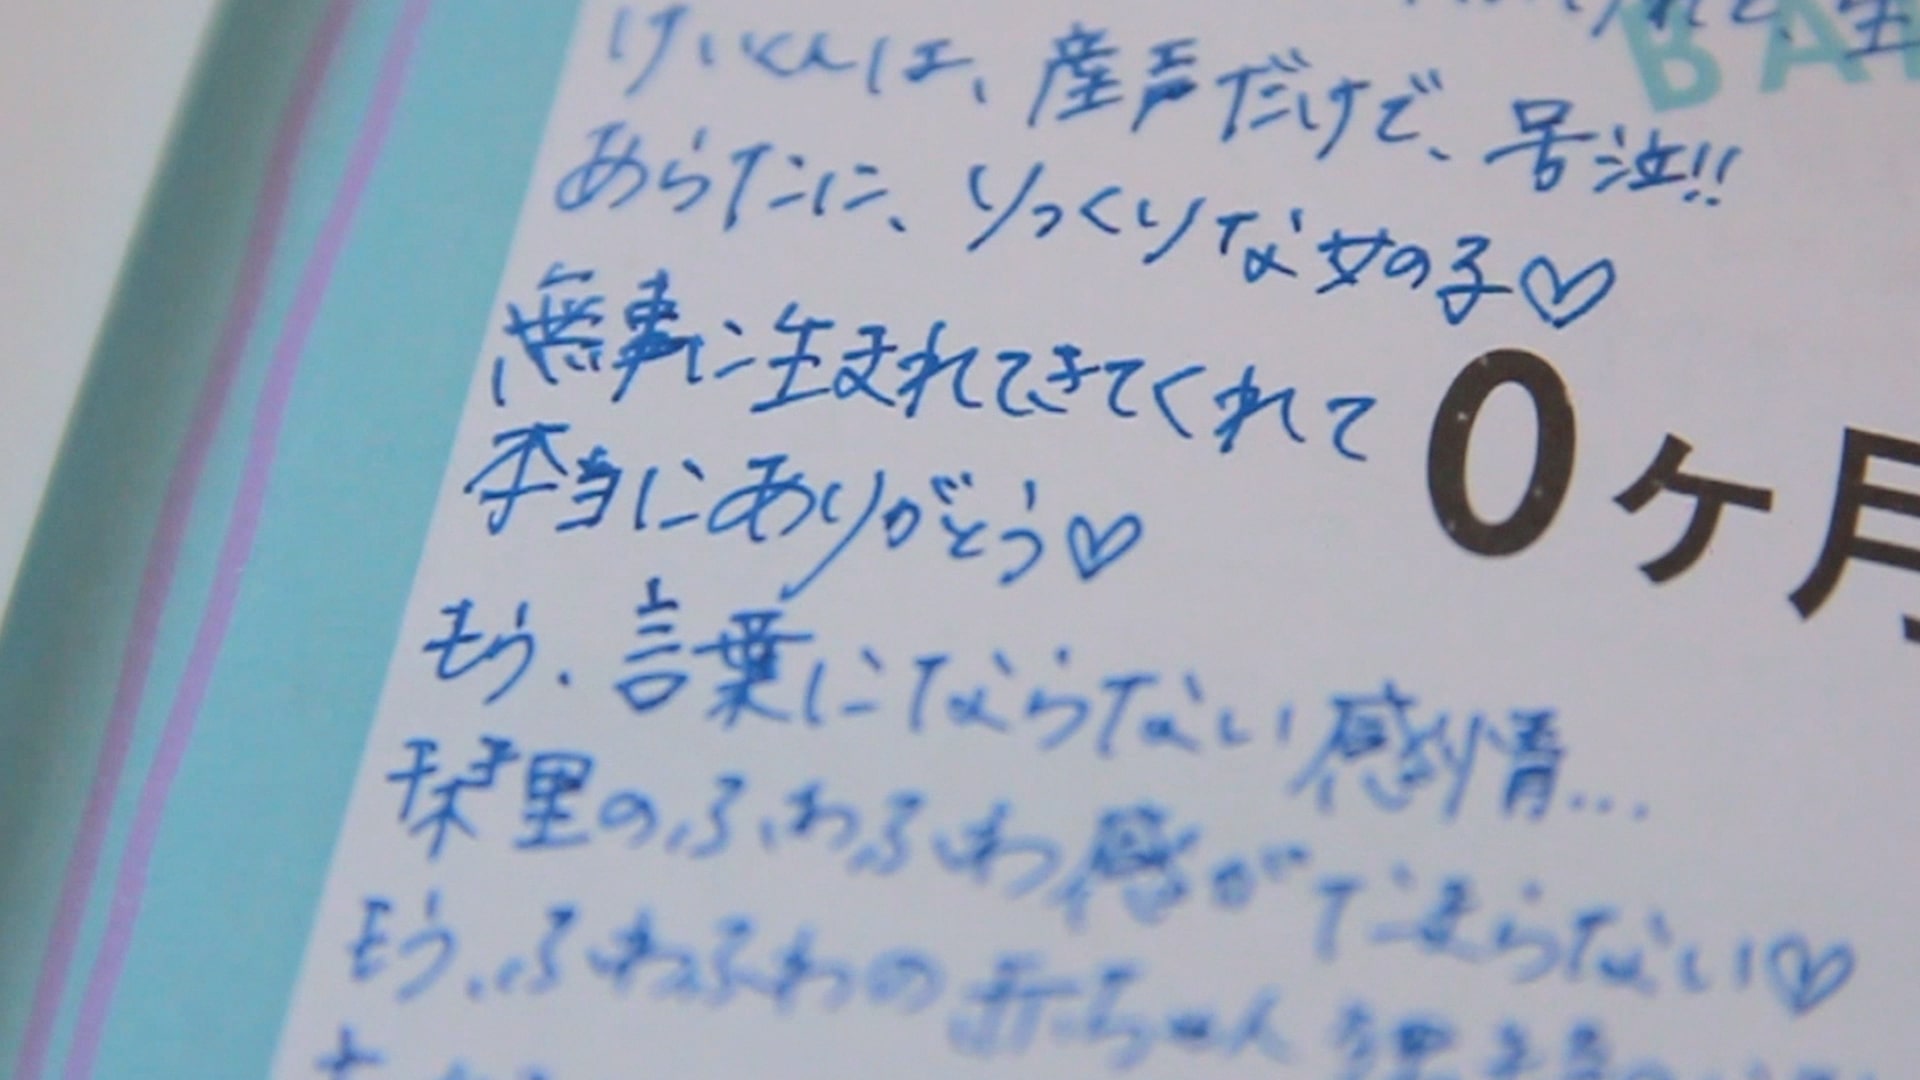 けいくんは、産声だけで、号泣!!
あらたに、りっくりな女の子♡
無事に生まれてきてくれて
本当にありがとう♡
0ヶ月
もう、言葉にならない感情...
栞里のふわふわ感がたまらない♡
もう、ふわふわの赤ちゃん